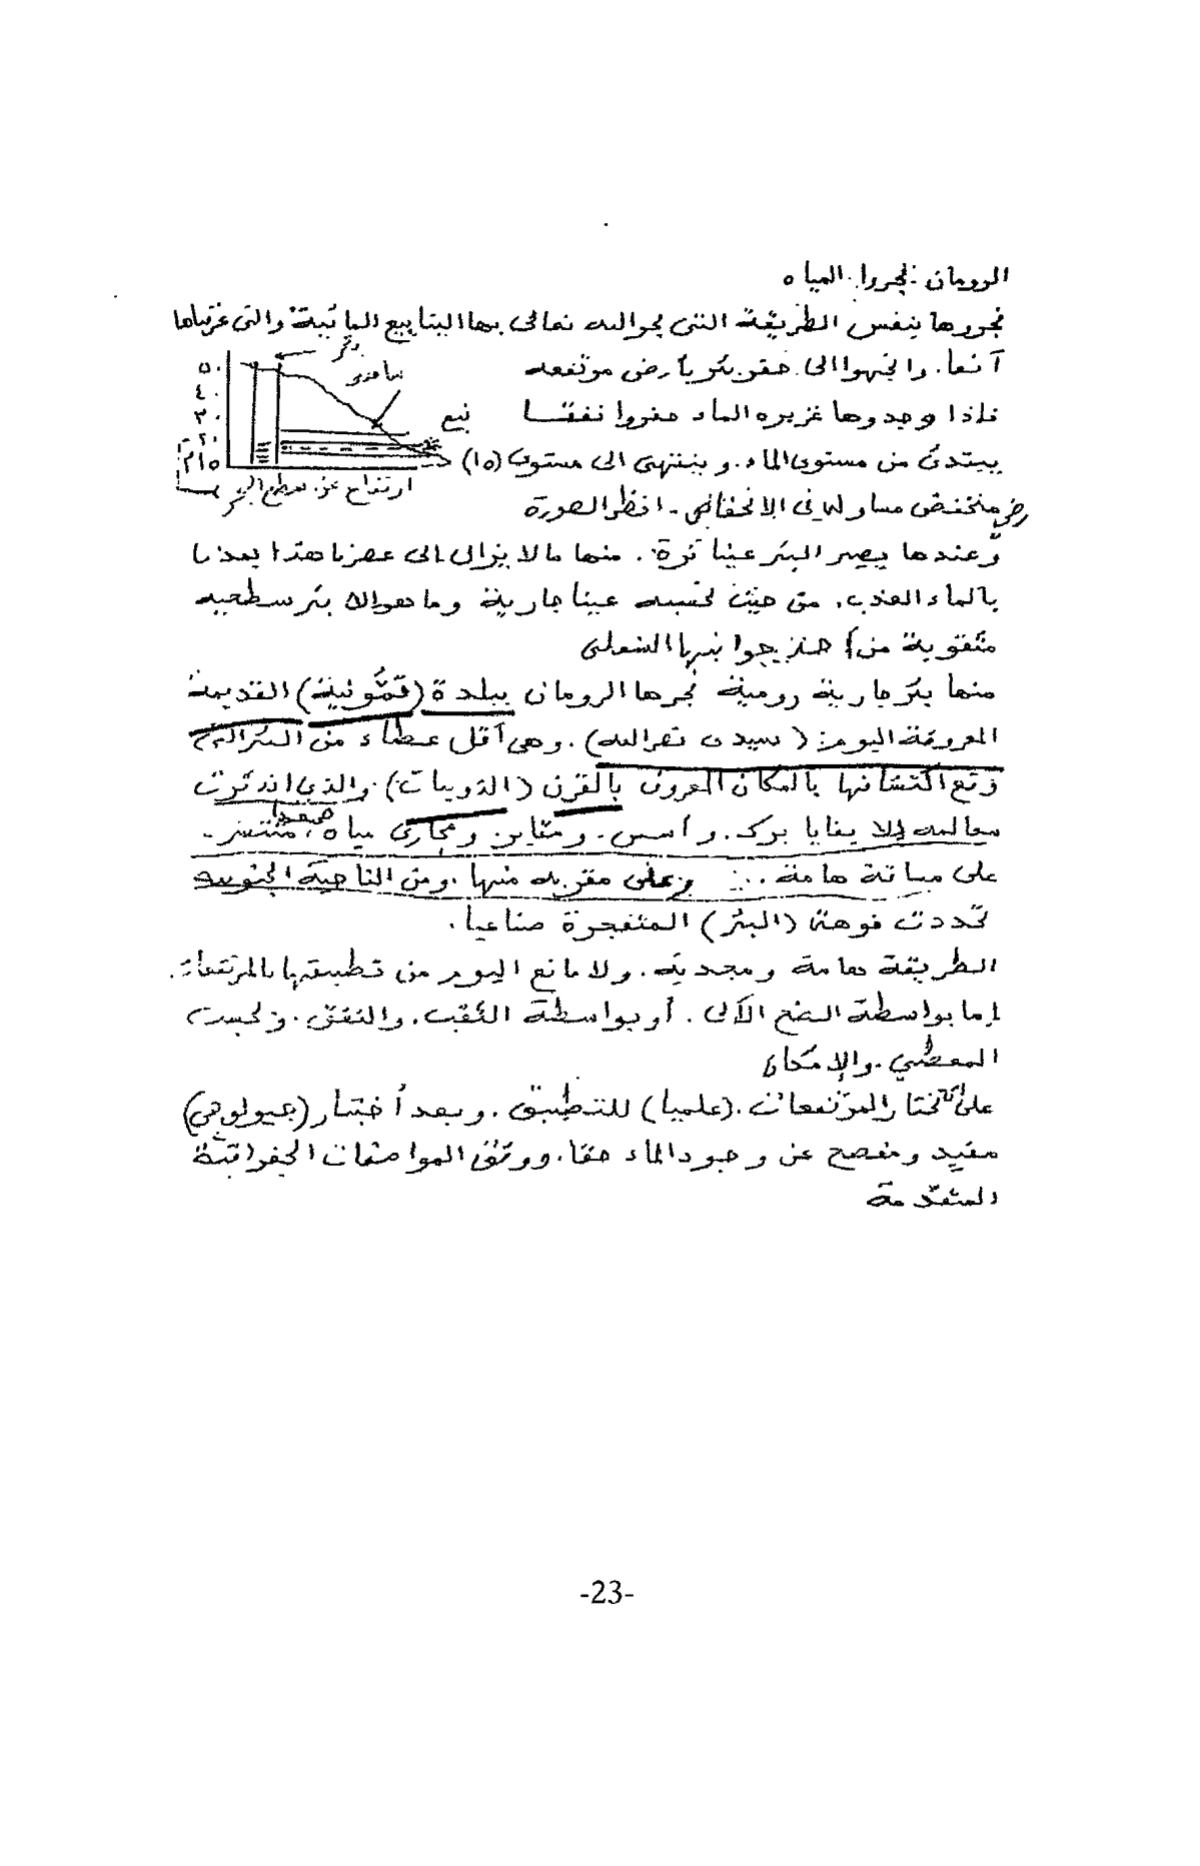 الرومان فجروا المياه
فجروها بنفس الطريقة التي فجر الله تعالى بها الينابيع المائية والتي عرفناها
آنفا. واتجهوا الى حفر بئر بأرض مرتفعة
فاذا وجدوها غزيرة الماء حفروا نفقا
يبتدئ من مستوى الماء. وينتهي الى مستوى (١٥)
منخفض مساو له في الانخفاض - انظر الصورة
بئر
٥٠
٤٠
٣٠
٢٠
١٥م
نبع
ارتفاع عن سطح البحر
وعندها يصير البئر عينا ثرة. منها ما لا يزال الى عصرنا هذا يمدنا
بالماء العذب. من حيث نحسبه عينا جارية وما هو إلا بئر سطحية
مثقوبة من جنبها السفلى
منها بئر جارية رومية فجرها الرومان ببلدة (قمّونية) القديمة
المعروفة اليوم: (سيدى نصرالله). وهي أقل عطاء من البئر
وقع اكتشافها بالمكان المعروف بالقرن (الذويبات) والذي اندثرت
معالمه إلا بقايا برك. وأسس. ومقابر. ومجارى مياه، منتشر.
على مسافة هامة... وعلى مقربة منها. ومن الناحية الجنوبية
تحددت فوهة (البئر) المتفجرة صناعيا.
الطريقة هامة ومجدية. ولا مانع اليوم من تطبيقها بالمرتفعات.
إما بواسطة الضخ الآلى. أو بواسطة الثقب. والنفق. وبحسب
المعطى. والإمكان
على أن تختار المرتفعات. (علميا) للتطبيق. وبعد أختبار (جيولوجي)
مفيد ومفصح عن وجود الماء حقا. ووفق المواصفات الجغرافية
المتقدمة
-23-